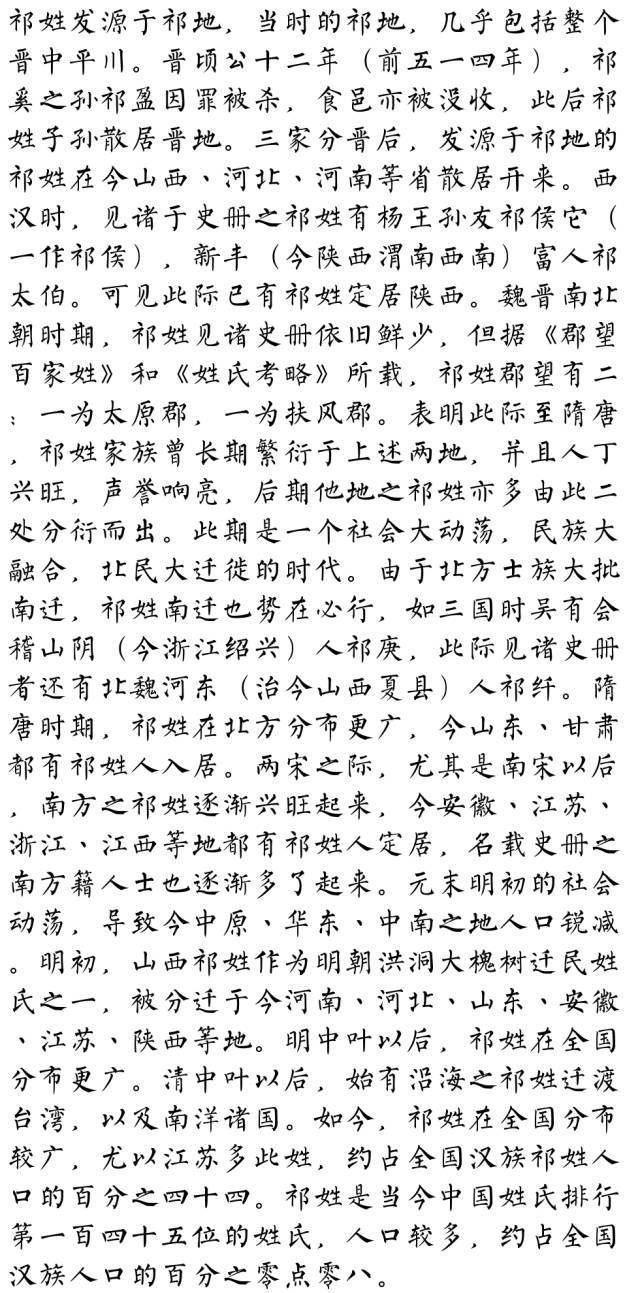 祁姓发源于祁地，当时的祁地，几乎包括整个
晋中平川。晋顷公十二年（前五一四年），祁
奚之孙祁盈因罪被杀，食邑亦被没收，此后祁
姓子孙散居晋地。三家分晋后，发源于祁地的
祁姓在今山西、河北、河南等省散居开来。西
汉时，见诸于史册之祁姓有杨王孙友祁侯它（
一作祁侯），新丰（今陕西渭南西南）富人祁
太伯。可见此际已有祁姓定居陕西。魏晋南北
朝时期，祁姓见诸史册依旧鲜少，但据《郡望
百家姓》和《姓氏考略》所载，祁姓郡望有二
：一为太原郡，一为扶风郡。表明此际至隋唐
，祁姓家族曾长期繁衍于上述两地，并且人丁
兴旺，声誉响亮，后期他地之祁姓亦多由此二
处分衍而出。此期是一个社会大动荡，民族大
融合，北民大迁徙的时代。由于北方士族大批
南迁，祁姓南迁也势在必行，如三国时吴有会
稽山阴（今浙江绍兴）人祁庚，此际见诸史册
者还有北魏河东（治今山西夏县）人祁纤。隋
唐时期，祁姓在北方分布更广，今山东、甘肃
都有祁姓人入居。两宋之际，尤其是南宋以后
，南方之祁姓逐渐兴旺起来，今安徽、江苏、
浙江、江西等地都有祁姓人定居，名载史册之
南方籍人士也逐渐多了起来。元末明初的社会
动荡，导致今中原、华东、中南之地人口锐减
。明初，山西祁姓作为明朝洪洞大槐树迁民姓
氏之一，被分迁于今河南、河北、山东、安徽
、江苏、陕西等地。明中叶以后，祁姓在全国
分布更广。清中叶以后，始有沿海之祁姓迁渡
台湾，以及南洋诸国。如今，祁姓在全国分布
较广，尤以江苏多此姓，约占全国汉族祁姓人
口的百分之四十四。祁姓是当今中国姓氏排行
第一百四十五位的姓氏，人口较多，约占全国
汉族人口的百分之零点零八。